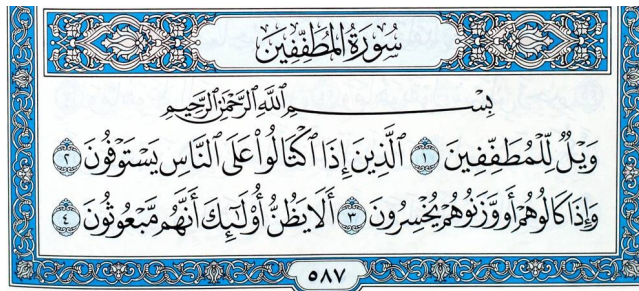 سُورَةُ المُطَفِّفِينَ
بِسْمِ ٱللَّهِ ٱلرَّحْمَٰنِ ٱلرَّحِيمِ
وَيْلٌ لِّلْمُطَفِّفِينَ ١ ٱلَّذِينَ إِذَا ٱكْتَالُوا۟ عَلَى ٱلنَّاسِ يَسْتَوْفُونَ ٢
وَإِذَا كَالُوهُمْ أَو وَّزَنُوهُمْ يُخْسِرُونَ ٣ أَلَا يَظُنُّ أُو۟لَٰٓئِكَ أَنَّهُم مَّبْعُوثُونَ ٤
٥٨٧